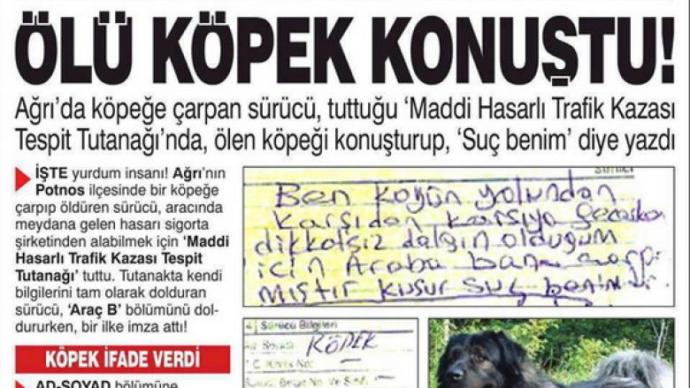 ÖLÜ KÖPEK KONUŞTU!
Ağrı’da köpeğe çarpan sürücü, tuttuğu ‘Maddi Hasarlı Trafik Kazası
Tespit Tutanağı’nda, ölen köpeği konuşturup, ‘Suç benim’ diye yazdı
İŞTE yurdum insanı! Ağrı’nın
Potnos ilçesinde bir köpeğe
çarpıp öldüren sürücü, aracında
meydana gelen hasarı sigorta
şirketinden alabilmek için ‘Maddi
Hasarlı Trafik Kazası Tespit
Tutanağı’ tuttu. Tutanakta kendi
bilgilerini tam olarak dolduran
sürücü, ‘Araç B’ bölümünü dol-
dururken, bir ilke imza attı!
KÖPEK İFADE VERDİ
AD-SOYAD bölümüne
Ben köyün yolundan
karşıdan karşıya geçerken
dikkatsiz dalgın olduğum
için Araba bana çarpı
mıştır kusur suç benim
Sürücü Bilgileri
Adı Soyadı KÖPEK